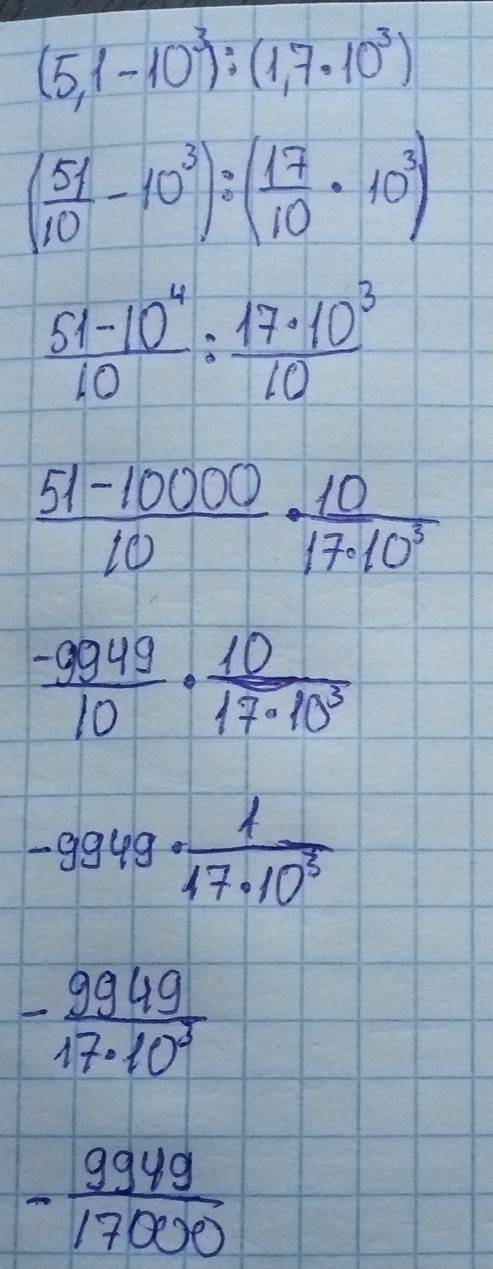 (5,1-10³):(1,7·10³)
(51/10 - 10³):(17/10 · 10³)
51-10⁴/10 : 17·10³/10
51-10000/10 · 10/17·10³
-9949/10 · 10/17·10³
-9949 · 1/17·10³
- 9949/17·10³
- 9949/17000